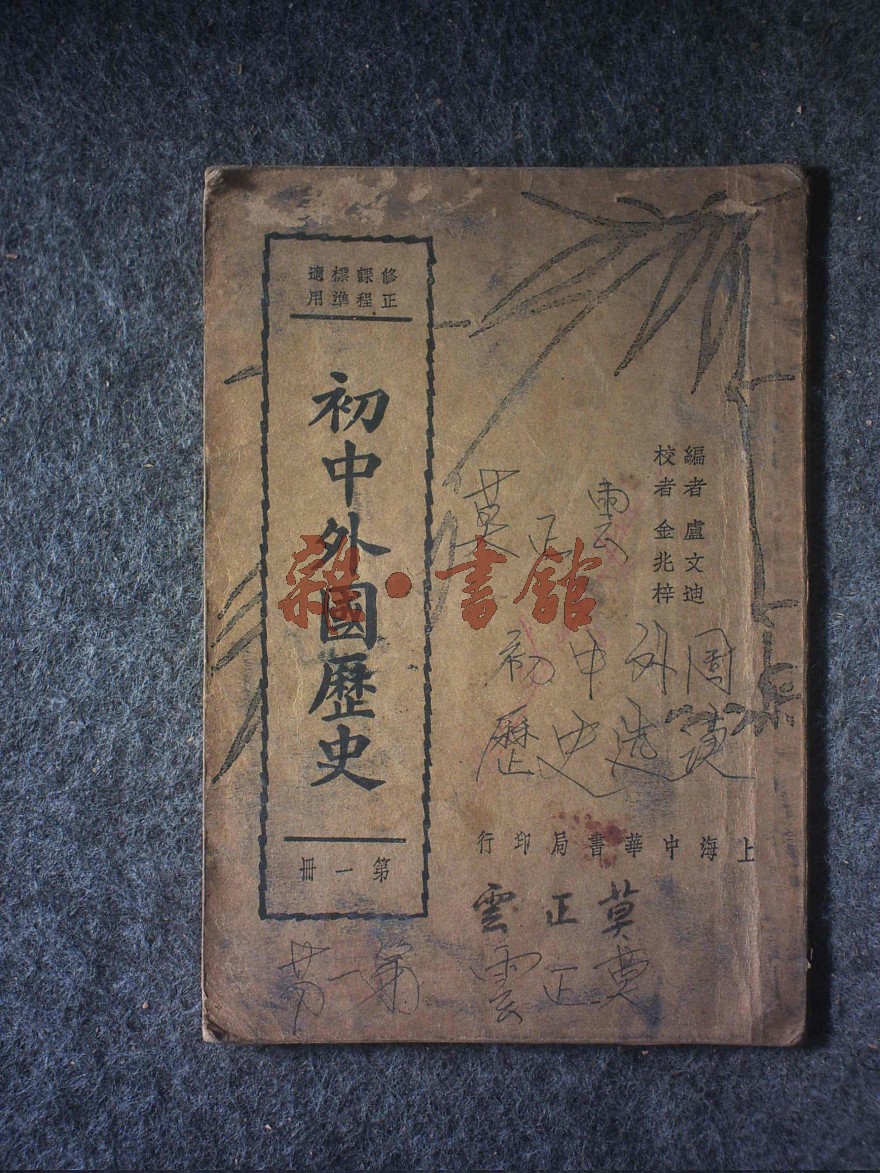 修正課程標準適用
初中外國歷史
第一冊
編者 盧文迪
校者 金兆梓
莫正雲
初中外
歷史
上海中華書局印行
莫正雲
莫正雲
第一
雜·書館